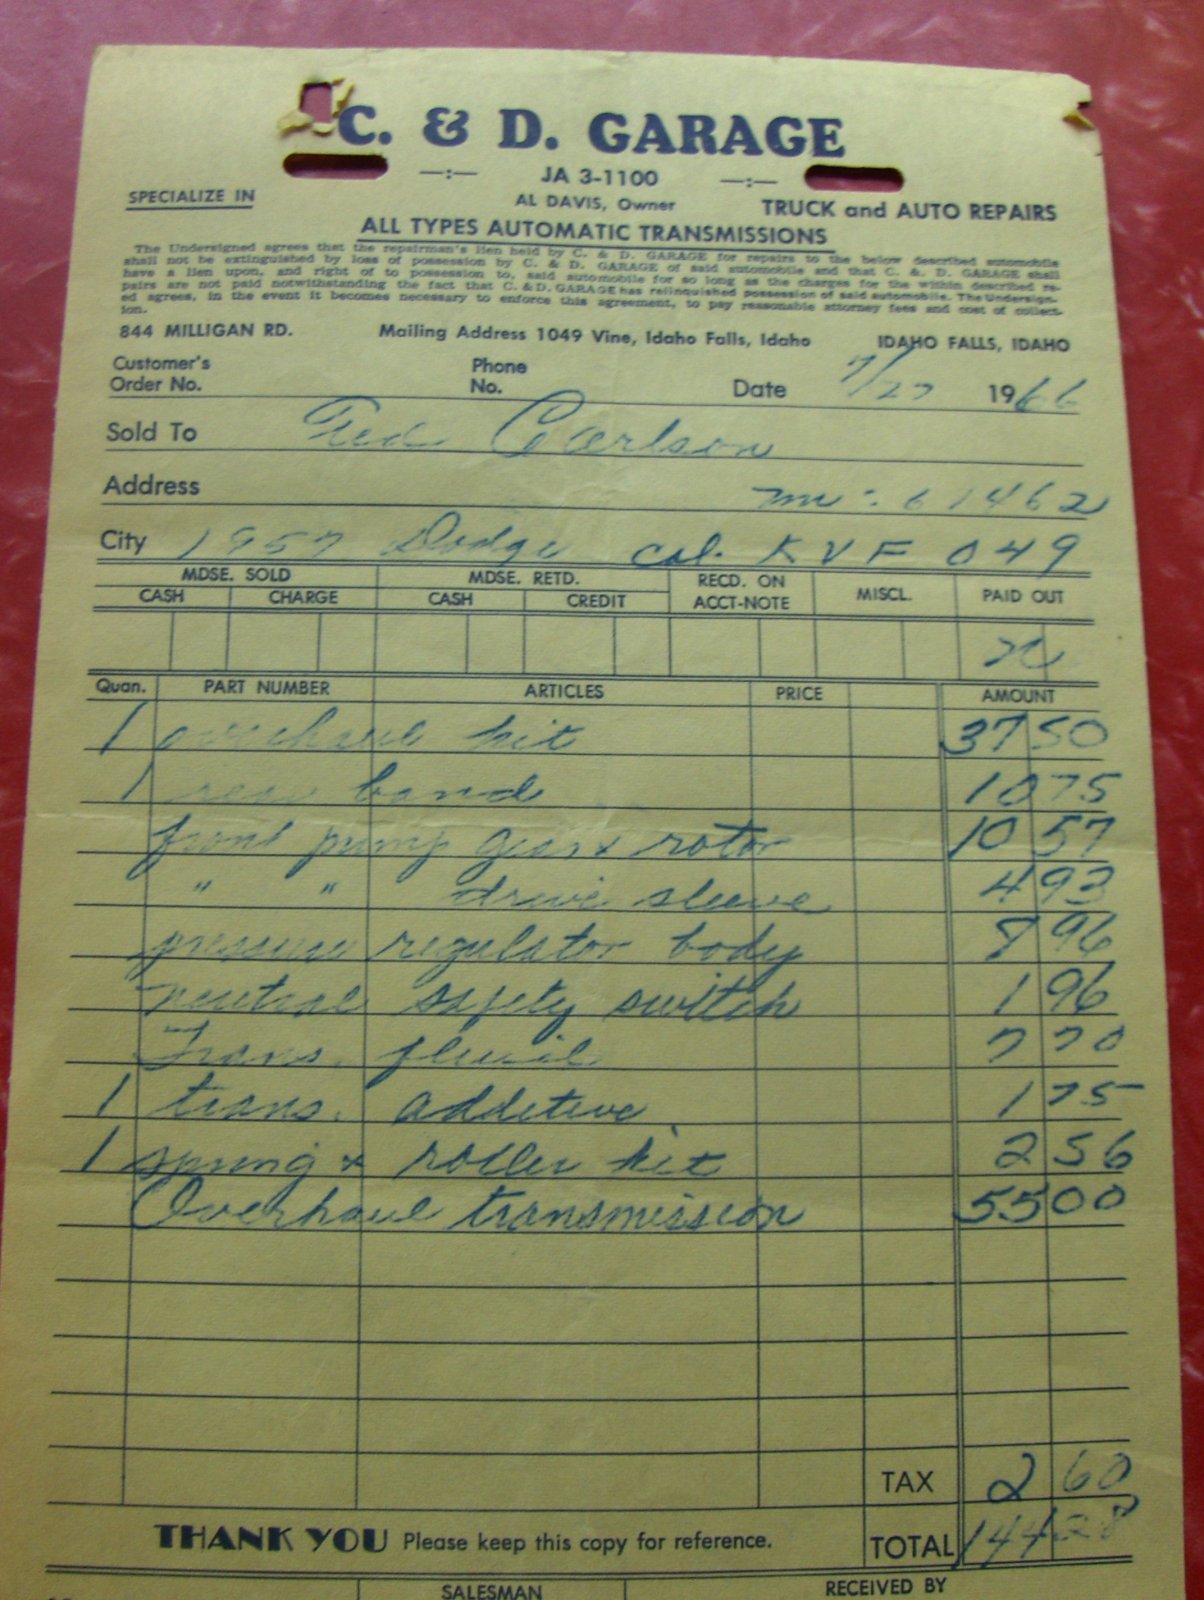 C. & D. GARAGE
JA 3-1100
AL DAVIS, Owner
SPECIALIZE IN
TRUCK and AUTO REPAIRS
ALL TYPES AUTOMATIC TRANSMISSIONS
The Undersigned agrees that the repairman's lien held by C. & D. GARAGE for repairs to the below described automobile
shall not be extinguished by loss of possession by C. & D. GARAGE of said automobile and that C. & D. GARAGE shall
have a lien upon, and right of to possession to, said automobile for so long as the charges for the within described re-
pairs are not paid notwithstanding the fact that C. & D. GARAGE has relinquished possession of said automobile. The Undersign-
ed agrees, in the event it becomes necessary to enforce this agreement, to pay reasonable attorney fees and cost of collect-
ion.
844 MILLIGAN RD. Mailing Address 1049 Vine, Idaho Falls, Idaho IDAHO FALLS, IDAHO
Customer's
Order No. Phone
No. Date 7/27 1966
Sold To Ted Carlson
Address mi: 61462
City 1957 Dodge Cal. KVF 049
MDSE. SOLD MDSE. RETD. RECD. ON
ACCT-NOTE MISCL. PAID OUT
CASH CHARGE CASH CREDIT
Quan. PART NUMBER ARTICLES PRICE AMOUNT
1 overhaul kit 37 50
1 rear band 10 75
front pump gear & rotor 10 57
" " drive sleeve 4 93
pressure regulator body 8 96
neutral safety switch 1 96
Trans. fluid 7 70
1 trans. additive 1 75
1 spring & roller kit 2 56
Overhaul transmission 55 00
TAX 2 60
THANK YOU Please keep this copy for reference. TOTAL 144 28
SALESMAN RECEIVED BY